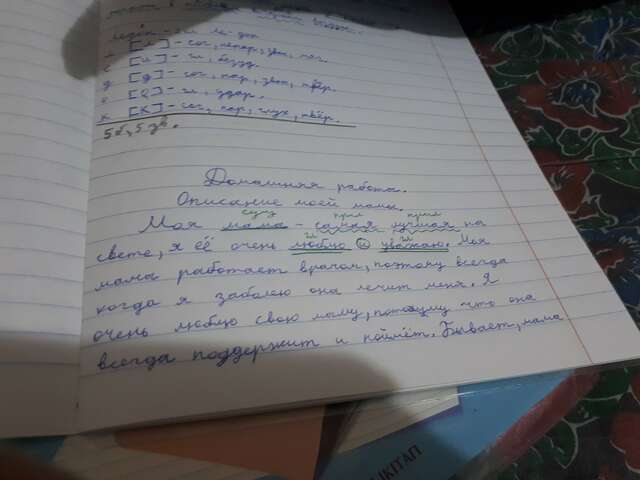 [л] - сог, непар, зв, мяг.
[и] - гл, безуд.
д [д] - сог, пар, звон, твёр.
о [о] - гл, удар.
к [к] - сог, пар, глух, твёр.
5б, 5 зв.
Домашняя работа.
Описание моей мамы.
сущ прил прил
Моя мама - самая лучшая на
свете, я её очень люблю и уважаю. Моя
мама работает врачом, поэтому всегда
когда я заболею она лечит меня. Я
очень люблю свою маму, потому что она
всегда поддержит и поймёт. Бывает, мама
КІТАП